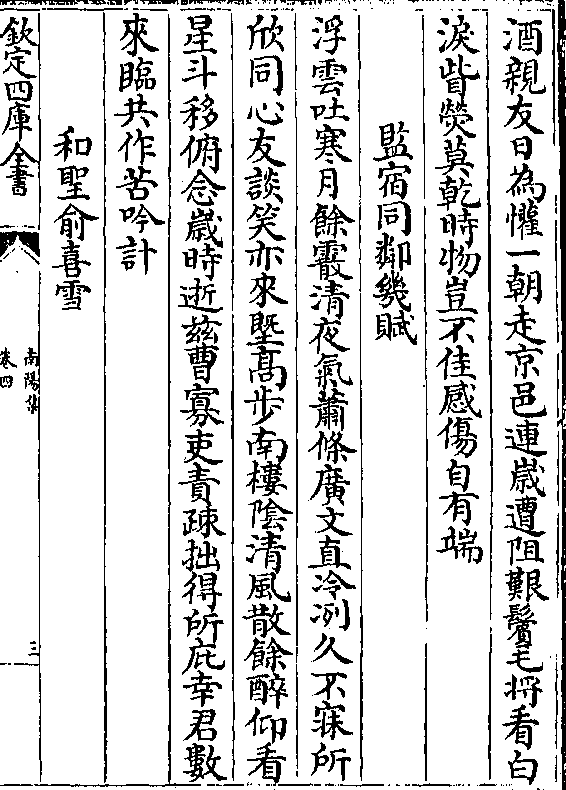 酒親友日為懽一朝走京邑連嵗遭阻艱鬢毛将看白
淚眥熒莫乾時物豈不佳感傷自有端
監宿同鄰幾賦
浮雲吐寒月餘霰清夜氣蕭條廣文直冷冽久不寐所
欣同心友談笑亦來塈髙步南樓陰清風散餘醉仰看
星斗移俯念嵗時逝兹曹寡吏責疎拙得所庇幸君數
來臨共作苦吟計
和聖俞喜雪
欽定四庫全書
南陽集
卷四
三